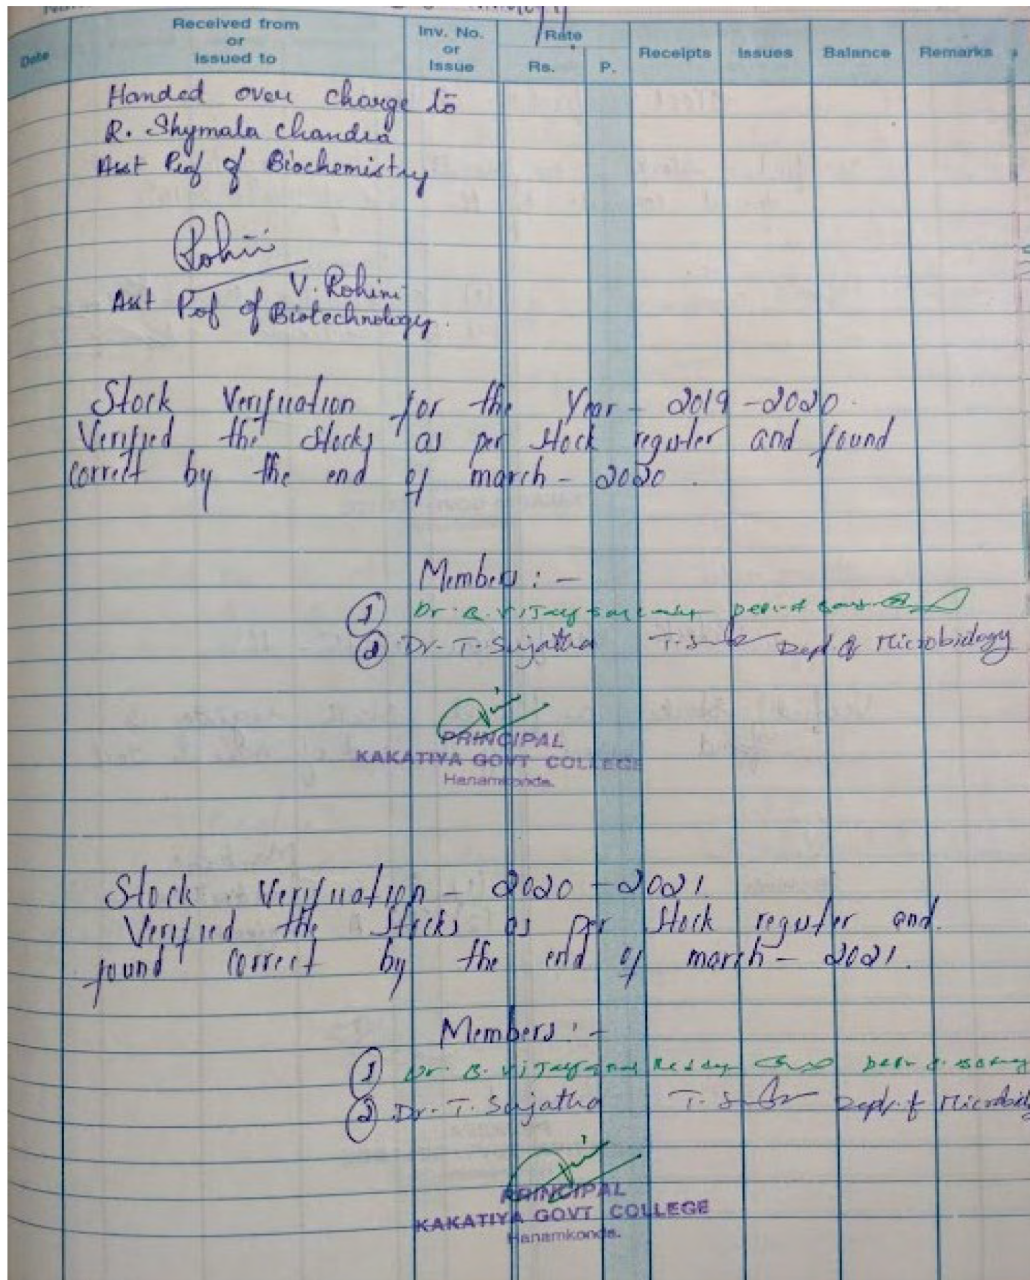 Date
Received from
or
Issued to
Inv. No.
or
Issue
Rate
Rs.
P.
Receipts
Issues
Balance
Remarks
Handed over charge to
R. Shymala Chandra
Asst Prof of Biochemistry
Rohini
V. Rohini
Asst Prof of Biotechnology.
Stock Verification for the Year - 2019 - 2020.
Verified the Stocks as per stock register and found
correct by the end of march - 2020.
Members : -
① Dr. B. Vijay
② Dr. T. Sujatha Dept. of Microbiology
PRINCIPAL
KAKATIYA GOVT COLLEGE
Hanamkonda.
Stock Verification - 2020 - 2021.
Verified the Stocks as per Stock register and.
found correct by the end of march - 2021.
Members : -
① Dr. B. Reddy Dept. of Botany
② Dr. T. Sujatha Dept. of Microbi
PRINCIPAL
KAKATIYA GOVT COLLEGE
Hanamkonda.